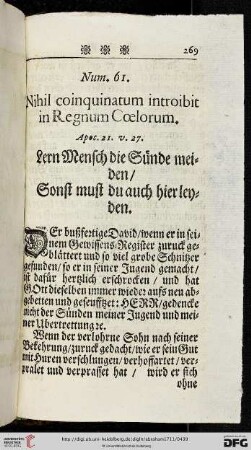 269
Num. 61.
Nihil coinquinatum introibit
in Regnum Cœlorum.
Apoc. 21. v. 27.
Lern Mensch die Sünde mei-
den/
Sonst must du auch hier ley-
den.
DEr bußfertige David/ wenn er in sei-
nem Gewissens-Register zuruck ge-
blättert und so viel grobe Schnitzer
gefunden/ so er in seiner Jugend gemacht/
ist dafür hertzlich erschrocken/ und hat
GOtt dieselben immer wieder aufs neu ab-
gebetten und geseufftzet: HERR/ gedencke
nicht der Sünden meiner Jugend und mei-
ner Übertrettung ꝛc.
Wenn der verlohrne Sohn nach seiner
Bekehrung/ zuruck gedacht/ wie er sein Gut
mit Huren verschlungen/ verhoffartet/ ver-
pralet und verprasset hat / wird er sich
ohne
http://digi.ub.uni-heidelberg.de/diglit/abraham1711/0430
© Universitätsbibliothek Heidelberg